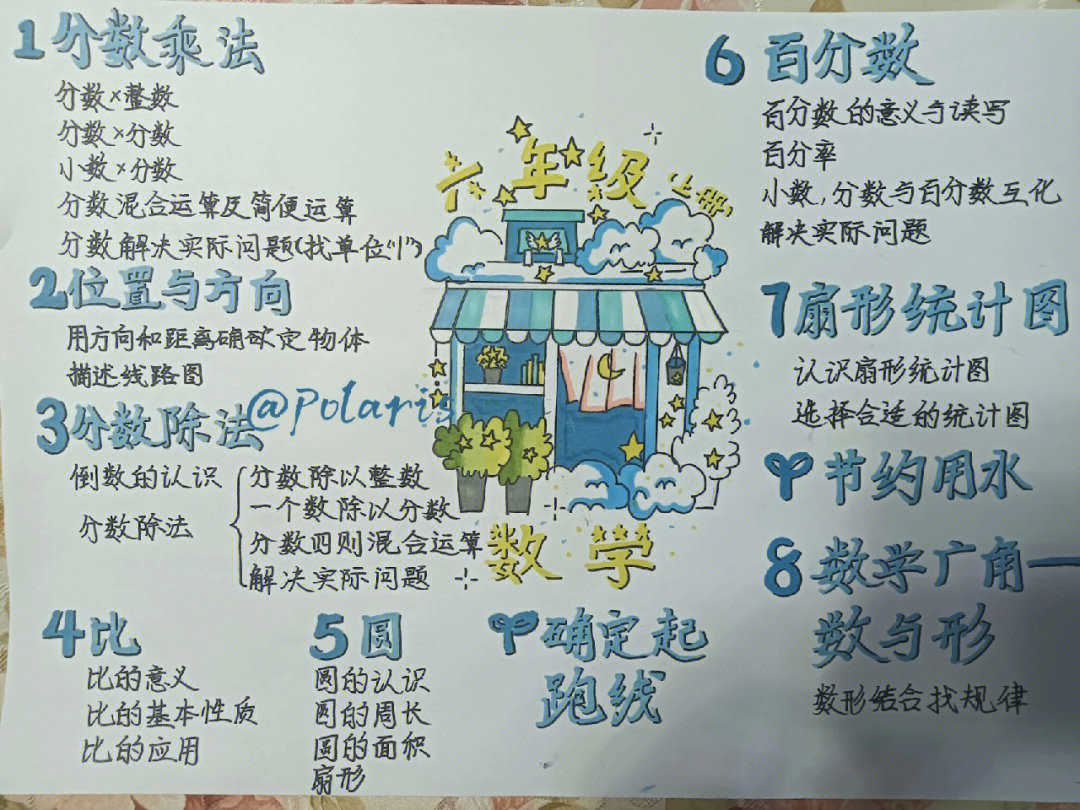 六年级 上册
数学
1 分数乘法
分数×整数
分数×分数
小数×分数
分数混合运算及简便运算
分数解决实际问题(找单位“1”)
2 位置与方向
用方向和距离确定物体
描述线路图
3 分数除法
@Polaris
倒数的认识
分数除法
分数除以整数
一个数除以分数
分数四则混合运算
解决实际问题
4 比
比的意义
比的基本性质
比的应用
5 圆
圆的认识
圆的周长
圆的面积
扇形
确定起
跑线
6 百分数
百分数的意义与读写
百分率
小数,分数与百分数互化
解决实际问题
7 扇形统计图
认识扇形统计图
选择合适的统计图
节约用水
8 数学广角—
数与形
数形结合找规律